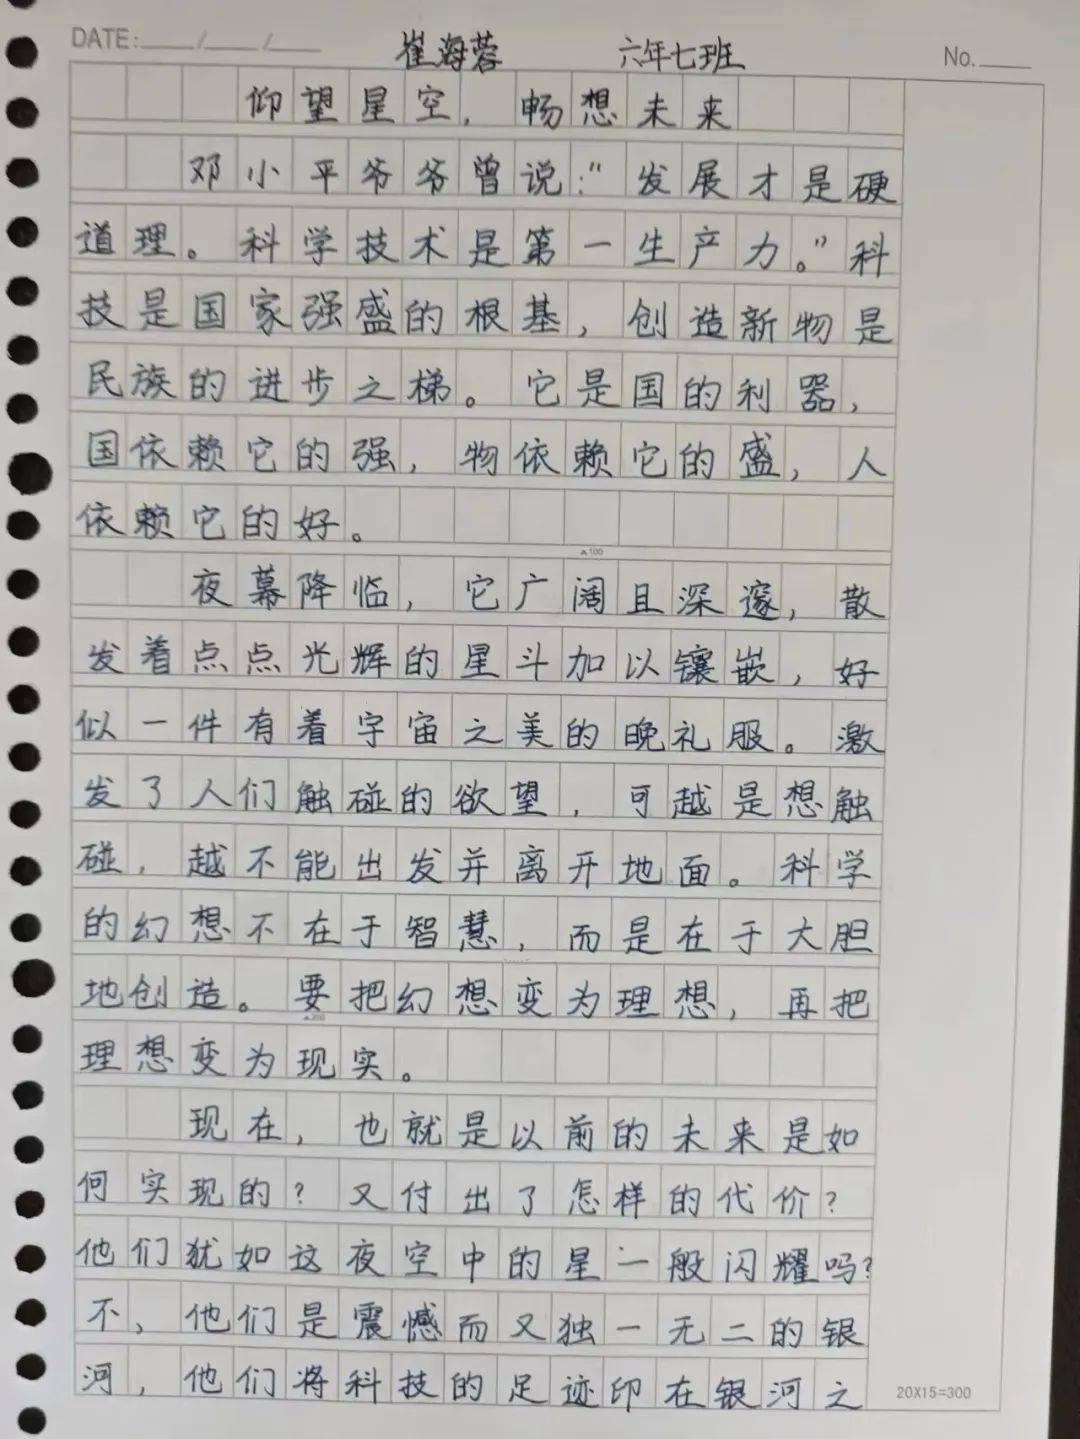 DATE:___/___/___ 崔海蓉 六年七班 No.___
仰望星空，畅想未来
邓小平爷爷曾说:"发展才是硬
道理。科学技术是第一生产力。"科
技是国家强盛的根基，创造新物是
民族的进步之梯。它是国的利器，
国依赖它的强，物依赖它的盛，人
依赖它的好。
▲100
夜幕降临，它广阔且深邃，散
发着点点光辉的星斗加以镶嵌，好
似一件有着宇宙之美的晚礼服。激
发了人们触碰的欲望，可越是想触
碰，越不能出发并离开地面。科学
的幻想不在于智慧，而是在于大胆
地创造。要把幻想变为理想，再把
▲200
理想变为现实。
现在，也就是以前的未来是如
何实现的？又付出了怎样的代价？
他们犹如这夜空中的星一般闪耀吗？
不，他们是震憾而又独一无二的银
河，他们将科技的足迹印在银河之
20X15=300